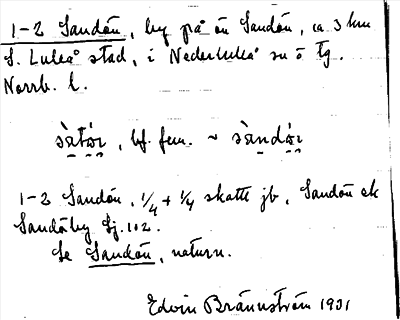 1-2 Sandön, by på ön Sandön, ca 3 km
S. Luleå stad, i Nederluleå sn o tg.
Norrb. l.
bf. fem. ~
1-2 Sandön, 1/4 + 1/4 skatte jb, Sandön ek
Sandöby Gj. 102.
Se Sandön, naturn.
Edvin Brännström 1931